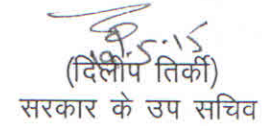 (दिलीप तिर्की)
सरकार के उप सचिव